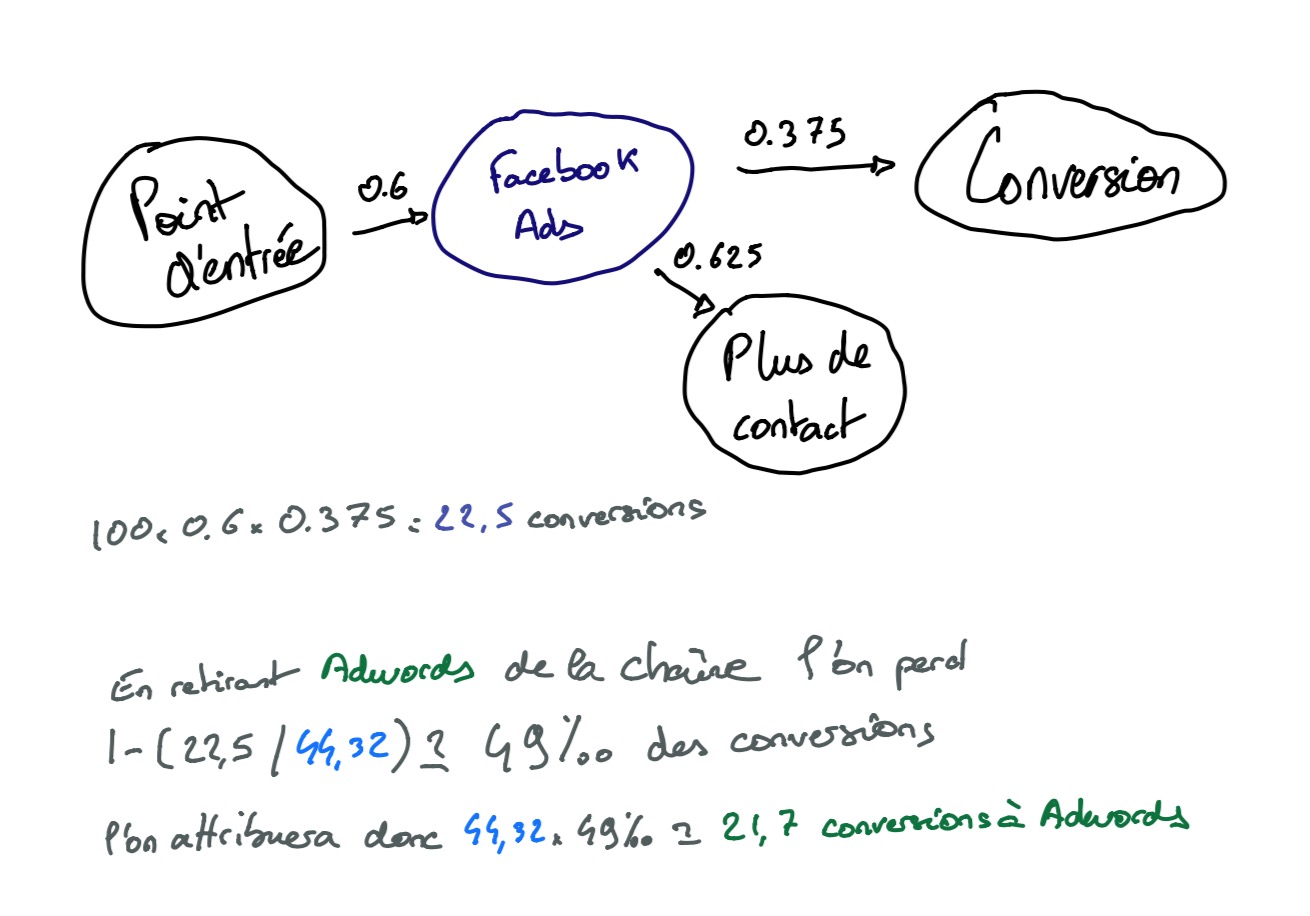 Point
d'entrée
0.6
Facebook
Ads
0.375
Conversion
0.625
Plus de
contact
100x 0.6 x 0.375 = 22,5 conversions
En retirant Adwords de la chaîne l'on perd
1-(22,5 / 44,32) ≃ 49% des conversions
l'on attribuera donc 44,32 x 49% ≃ 21,7 conversions à Adwords